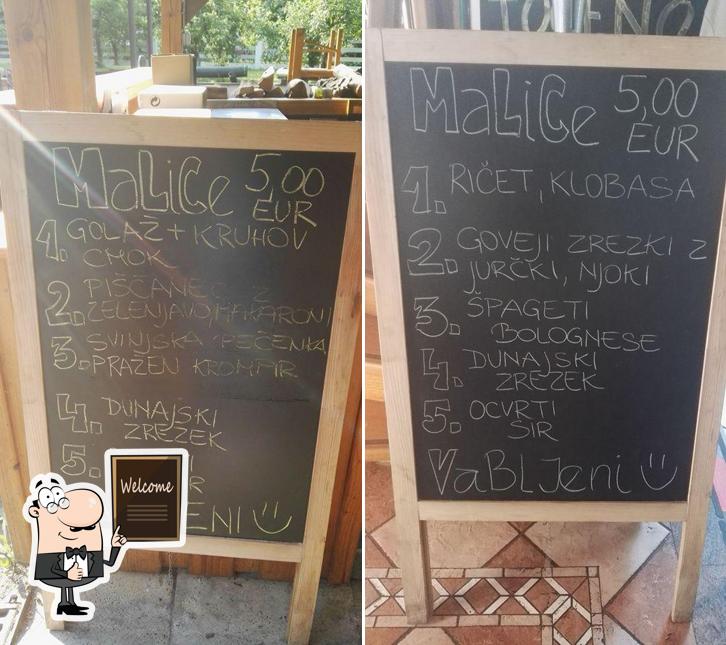 MaLiCe 5,00
EUR
1. GOLAŽ + KRUHOV
CMOK
2. PIŠČANEC Z
ZELENJAVO, MAKARONI
3. SVINJSKA PEČENKA
PRAŽEN KROMPIR
4. DUNAJSKI
ZREZEK
5.
ENI
Welcome
MaLiCe 5,00
EUR
1. RIČET, KLOBASA
2. GOVEJI ZREZKI Z
JURČKI, NJOKI
3. ŠPAGETI
BOLOGNESE
4. DUNAJSKI
ZREZEK
5. OCVRTI
SIR
VaBLJeni